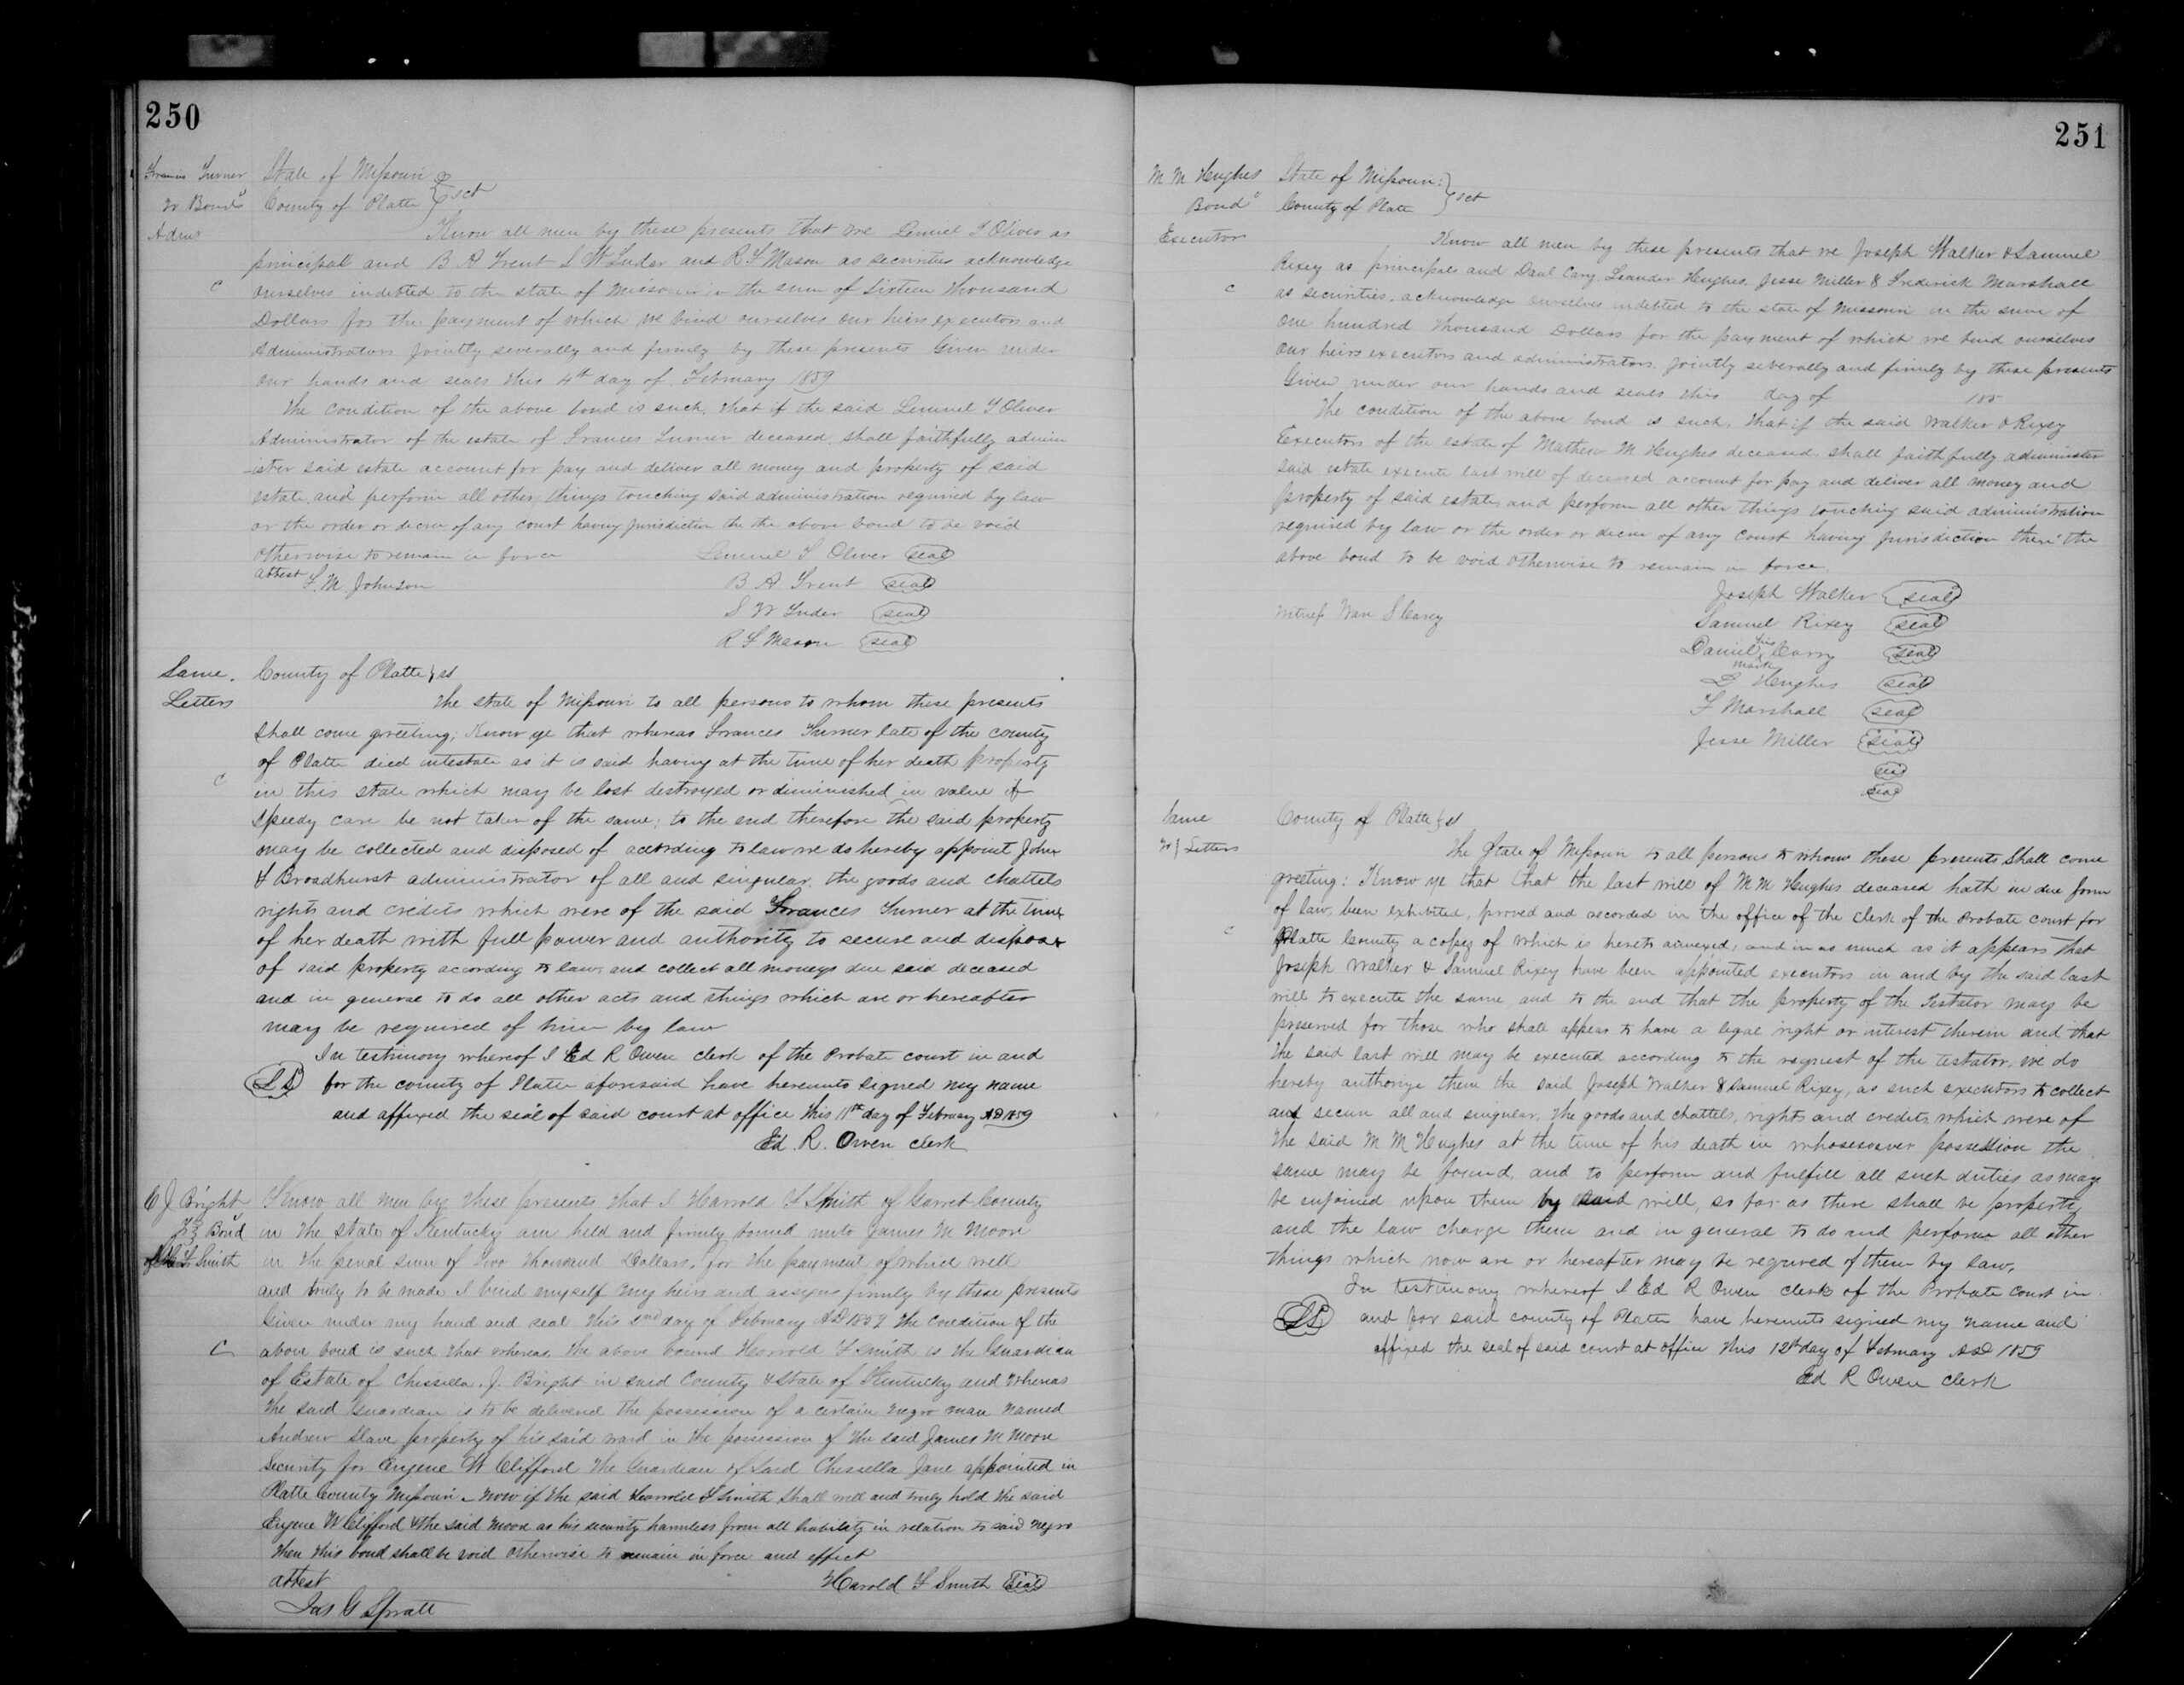 250
Frances Turner
to Bond
Admr
State of Missouri
County of Platte } sct
Know all men by these presents that we Lemuel T Oliver as
principal and B A Trent S W Luder and R F Mason as securities acknowledge
c
ourselves indebted to the state of Missouri in the sum of Sixteen thousand
Dollars for the payment of which we bind ourselves our heirs executors and
Administrators Jointly severally and firmly by these presents Given under
our hands and seals this 4th day of February 1859
The condition of the above bond is such, that if the said Lemuel T Oliver
Administrator of the estate of Frances Turner deceased, shall faithfully admin
-ister said estate account for pay and deliver all money and property of said
estate and perform all other things touching said administration required by law
or the order or decree of any court having Jurisdiction the the above bond to be void
otherwise to remain in force
Lemuel T Oliver seal
attest F. M. Johnson
B A Trent seal
S W Luder seal
R F Mason seal
Same.
Letters
County of Platte } st
The state of Missouri to all persons to whom these presents
shall come greeting; Know ye that whereas Frances Turner late of the county
of Platte died intestate as it is said having at the time of her death property
c
in this state which may be lost destroyed or diminished in value if
speedy care be not taken of the same; to the end therefore the said property
may be collected and disposed of according to law we do hereby appoint John
H Broadhurst administrator of all and singular. the goods and chattels
rights and credits which were of the said Frances Turner at the time
of her death with full power and authority to secure and dispose
of said property according to law, and collect all moneys due said deceased
and in general to do all other acts and things which are or hereafter
may be required of him by law
In testimony whereof I Ed R Owen clerk of the Probate court in and
LS for the county of Platte aforesaid have hereunto signed my name
and affixed the seal of said court at office this 11th day of February AD 1859
Ed. R. Owen clerk
C J Bright
Bond
Smith
Know all men by these presents that I Harrold F Smith of Garret County
in the State of Kentucky am held and firmly bound unto James M Moore
in the penal sum of two thousand Dollars, for the payment of which well
and truly to be made I bind myself my heirs and assigns firmly by these presents
Given under my hand and seal this 2nd day of February AD 1859 The condition of the
C
above bond is such that whereas, the above bound Harrold F Smith is the Guardian
of Estate of Chessella. J. Bright in said County & State of Kentucky and Whereas
the said Guardian is to be delivered the possession of a certain negro man named
Andrew slave property of his said ward in the possession of the said James M Moore
security for Eugene W Clifford the Guardian of said Chessella Jane appointed in
Platte County Missouri - Now if the said Harrold F Smith shall well and truly hold the said
Eugene W Clifford & the said Moore as his security harmless from all liability in relation to said Negro
then this bond shall be void otherwise to remain in force and effect
attest
Harold F Smith seal
Jas G Spratt
251
M M Hughes
Bond
Executor
State of Missouri
County of Platte } sct
Know all men by these presents that we Joseph Walker & Samuel
Rixey as principals and Danl Cary. Leander Hughes, Jesse Miller & Frederick Marshall
c
as securities, acknowledge ourselves indebted to the state of Missouri in the sum of
one hundred thousand Dollars for the payment of which we bind ourselves
our heirs executors and administrators, jointly severally and firmly by these presents
Given under our hands and seals this day of 185
The condition of the above bond is such, that if the said Walker & Rixey
Executors of the estate of Mathew M Hughes deceased, shall faithfully administer
said estate execute last will of deceased account for pay and deliver all money and
property of said estate, and perform all other things touching said administration
required by law or the order or decree of any court having jurisdiction then the
above bond to be void otherwise to remain in force.
Joseph Walker seal
Witness
Samuel Rixey seal
Daniel his mark Carry seal
L Hughes seal
F Marshall seal
Jesse Miller seal
seal
seal
Same
Letters
County of Platte } st
The State of Missouri to all persons to whom these presents shall come
greeting: Know ye that that the last will of M M Hughes deceased hath in due form
of law, been exhibited, proved and recorded in the office of the clerk of the Probate court for
c
Platte County a copy of which is hereto annexed; and in as much as it appears that
Joseph Walker & Samuel Rixey have been appointed executors in and by the said last
will to execute the same, and to the end that the property of the Testator may be
preserved for those who shall appear to have a legal right or interest therein and that
the said last will may be executed according to the request of the testator, we do
hereby authorize them the said Joseph Walker & Samuel Rixey, as such executors to collect
and secure all and singular, the goods and chattels, rights and credits which were of
the said M M Hughes at the time of his death in whosesoever possession the
same may be found, and to perform and fulfill all such duties as may
be enjoined upon them by said will, so far as there shall be property
and the law charge them and in general to do and perform all other
things which now are or hereafter may be required of them by law.
In testimony whereof I Ed R Owen clerk of the Probate court in
LS and for said county of Platte have hereunto signed my name and
affixed the seal of said court at office this 12th day of February AD 1859
Ed R Owen clerk